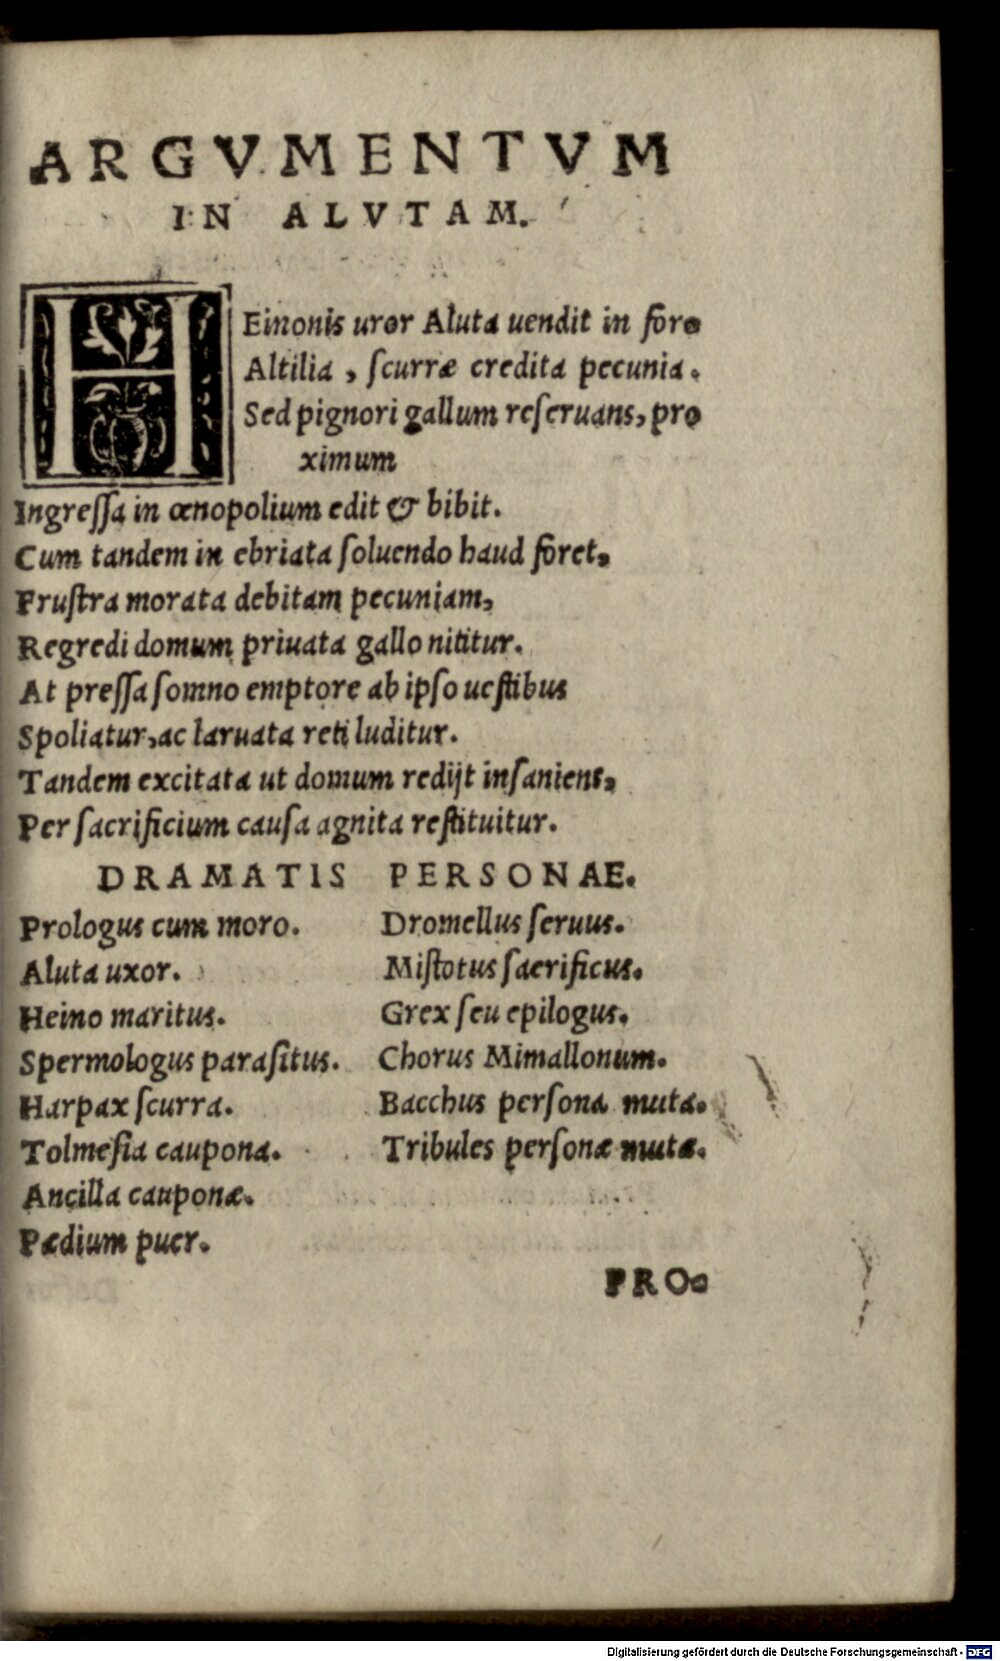 ARGVMENTVM
IN ALVTAM.
HEinonis uror Aluta uendit in foro
Altilia, ſcurræ credita pecunia.
Sed pignori gallum reſeruans, pro
ximum
Ingreſſa in œnopolium edit & bibit.
Cum tandem in ebriata ſoluendo haud foret,
Fruſtra morata debitam pecuniam,
Regredi domum priuata gallo nititur.
At preſſa ſomno emptore ab ipſo ueſtibus
Spoliatur, ac laruata reti luditur.
Tandem excitata ut domum redijt inſaniens,
Per ſacrificium cauſa agnita reſtituitur.
DRAMATIS PERSONAE.
Prologus cum moro.
Aluta uxor.
Heino maritus.
Spermologus paraſitus.
Harpax ſcurra.
Tolmeſia caupona.
Ancilla cauponæ.
Pædium puer.
Dromellus ſeruus.
Miſtotus ſacrificus.
Grex ſeu epilogus.
Chorus Mimallonum.
Bacchus perſona muta.
Tribules perſonæ mutæ.
PRO-
Digitalisierung gefördert durch die Deutsche Forschungsgemeinschaft - DFG